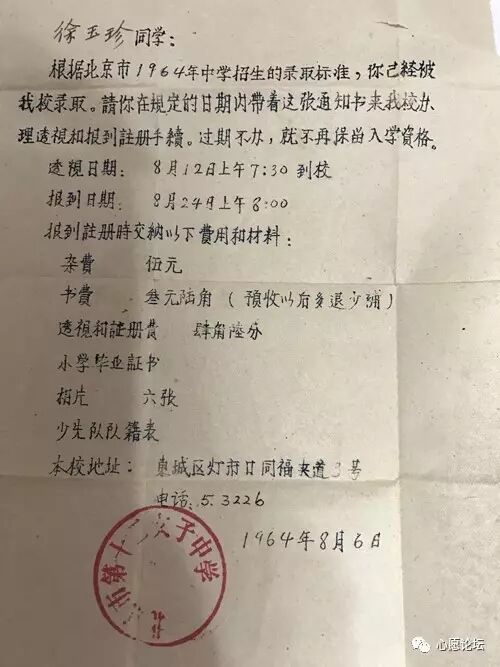 徐玉珍同学:
根据北京市1964年中学招生的录取标准,你已经被
我校录取。請你在規定的日期内带着这张通知书来我校办
理透視和报到註册手續。过期不办,就不再保留入学資格。
透視日期: 8月12日上午7:30到校
报到日期: 8月24日上午8:00
报到註册時交納以下費用和材料:
杂費 伍元
书費 叁元陆角(預收以后多退少補)
透視和註册費 肆角陸分
小学毕业証书
相片 六张
少先队队籍表
本校地址: 東城区灯市口同福夹道3号
电话:5.3226
1964年8月6日
市第十二女子中学
心愿论坛